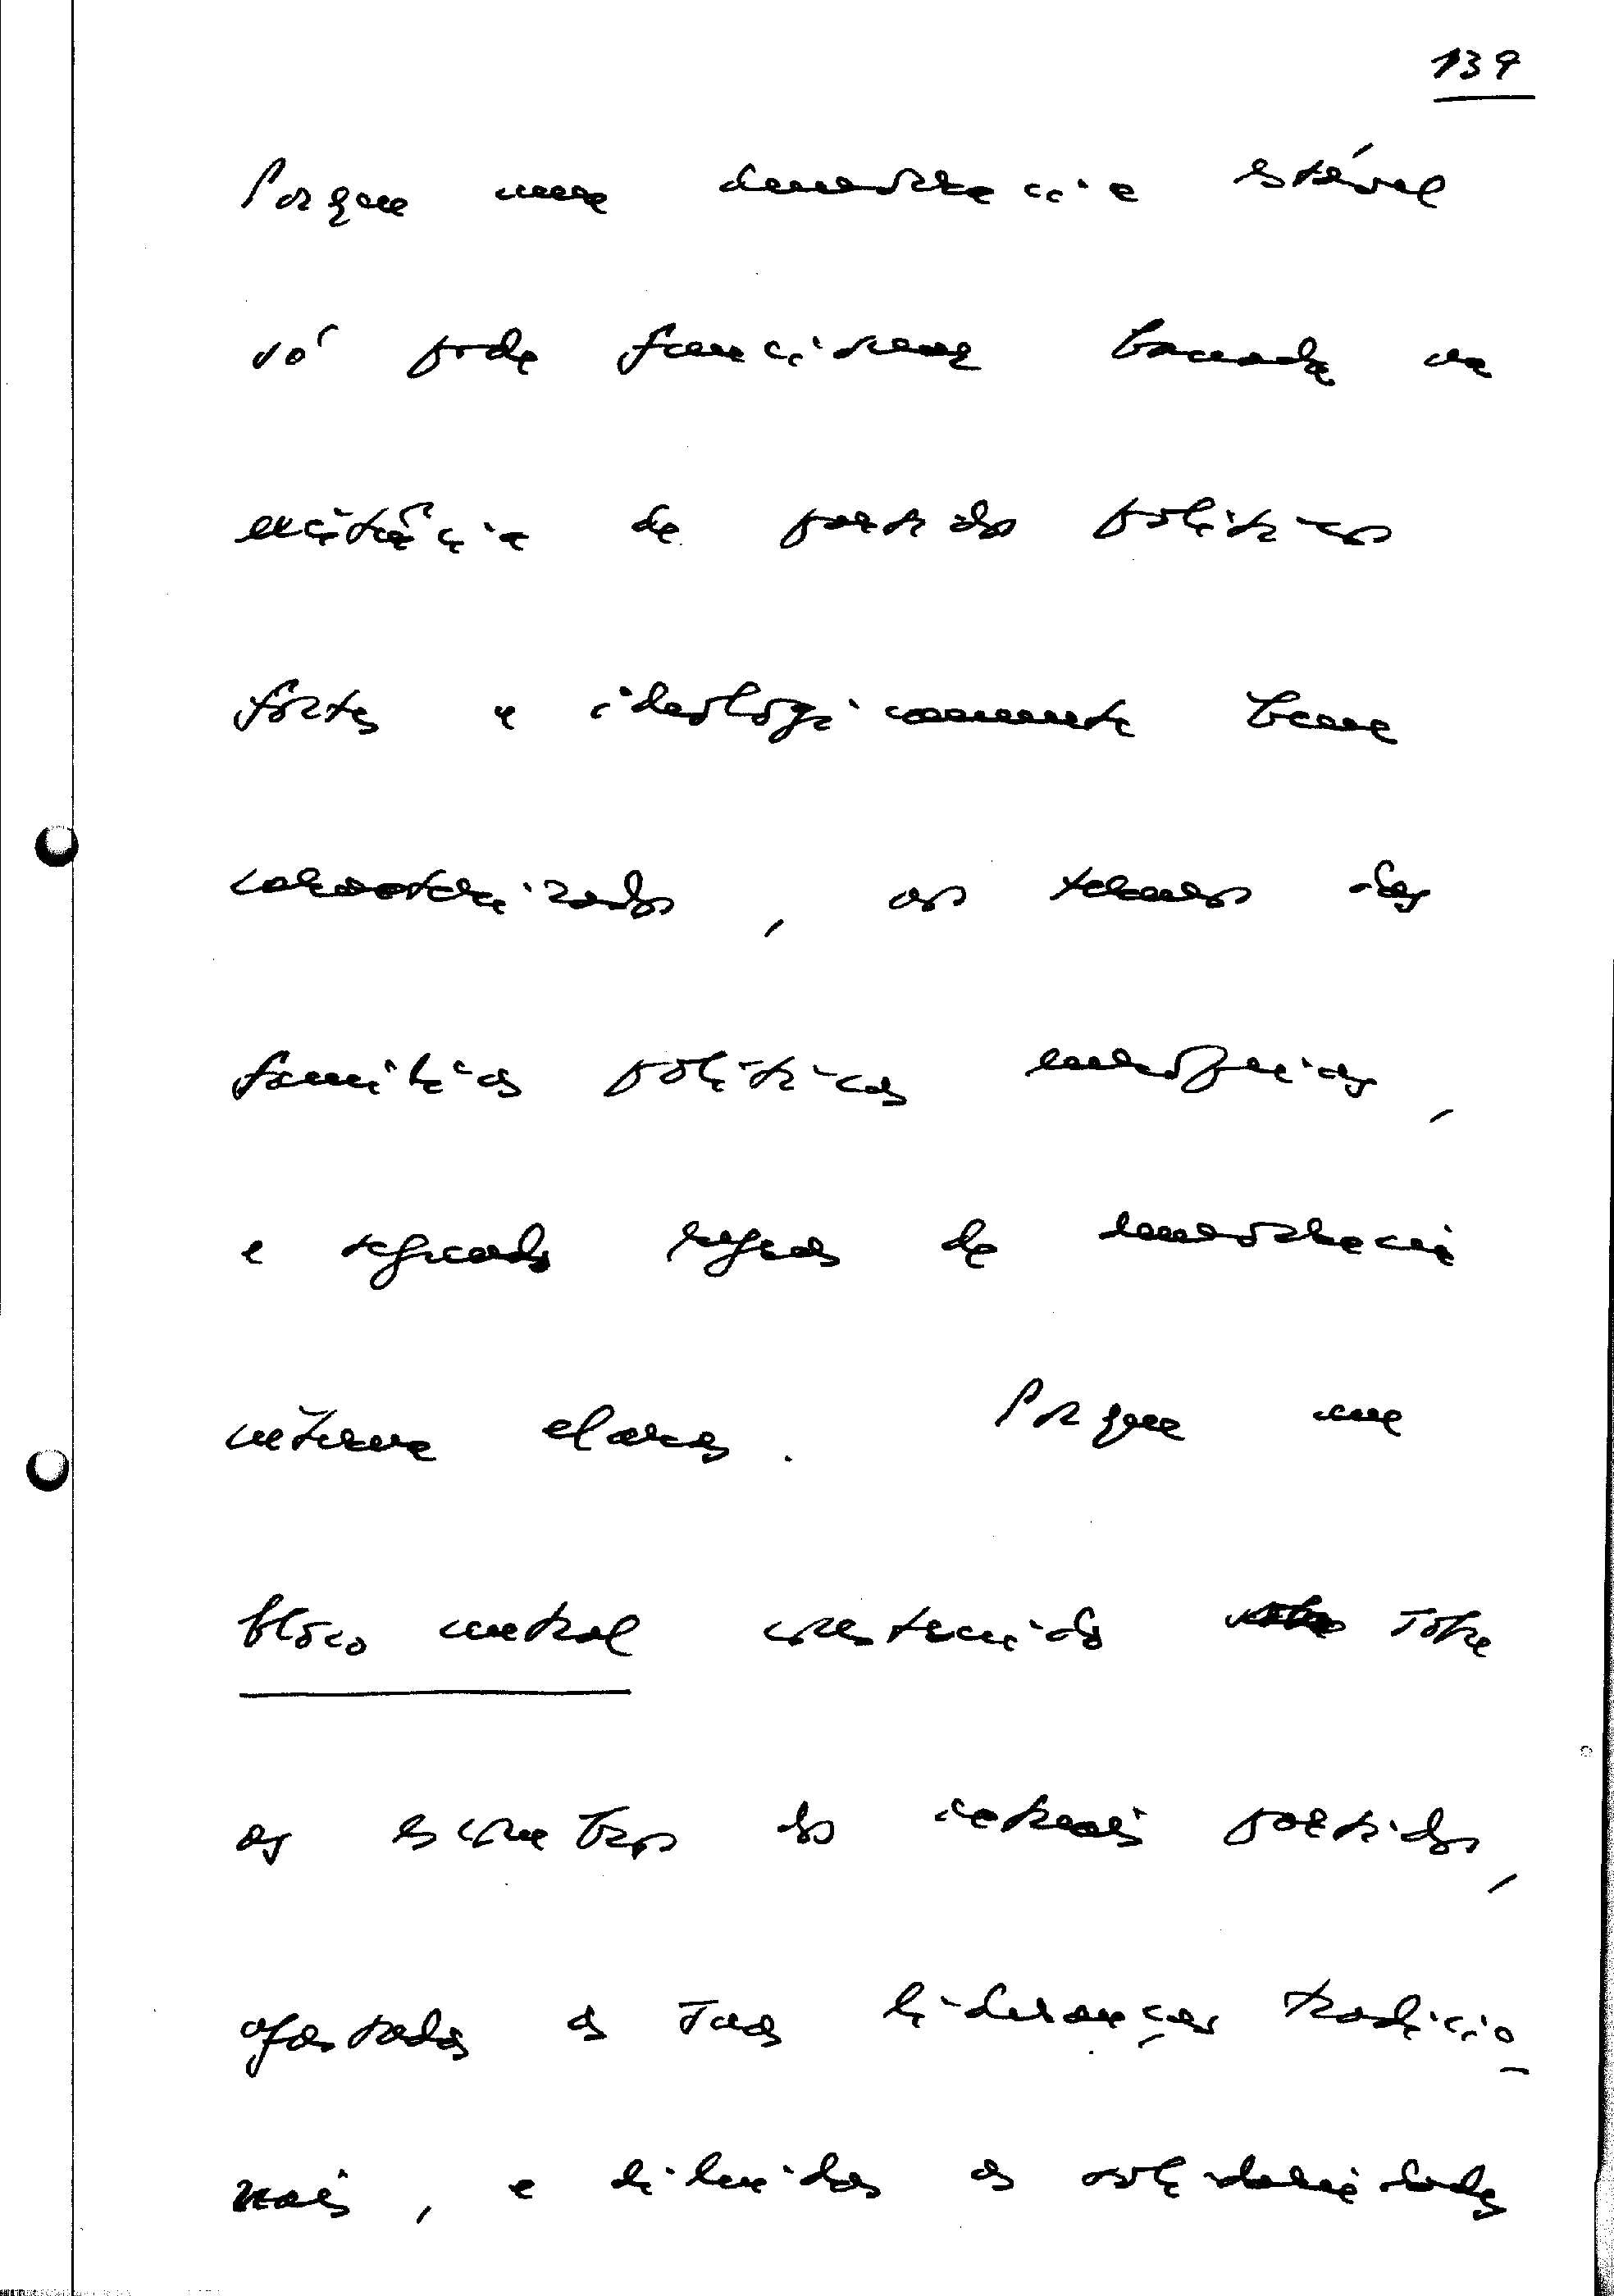 139
Porque uma democracia estável
só pode funcionar baseada na
existência de partidos políticos
fortes e ideologicamente bem
caracterizados, os termos das
famílias políticas europeias,
e segundo regras de democracia
interna claras. Porque um
bloco central construído sobre
os escombros dos actuais partidos,
afastadas as suas lideranças tradicio-
nais, e diluídas as solidariedades